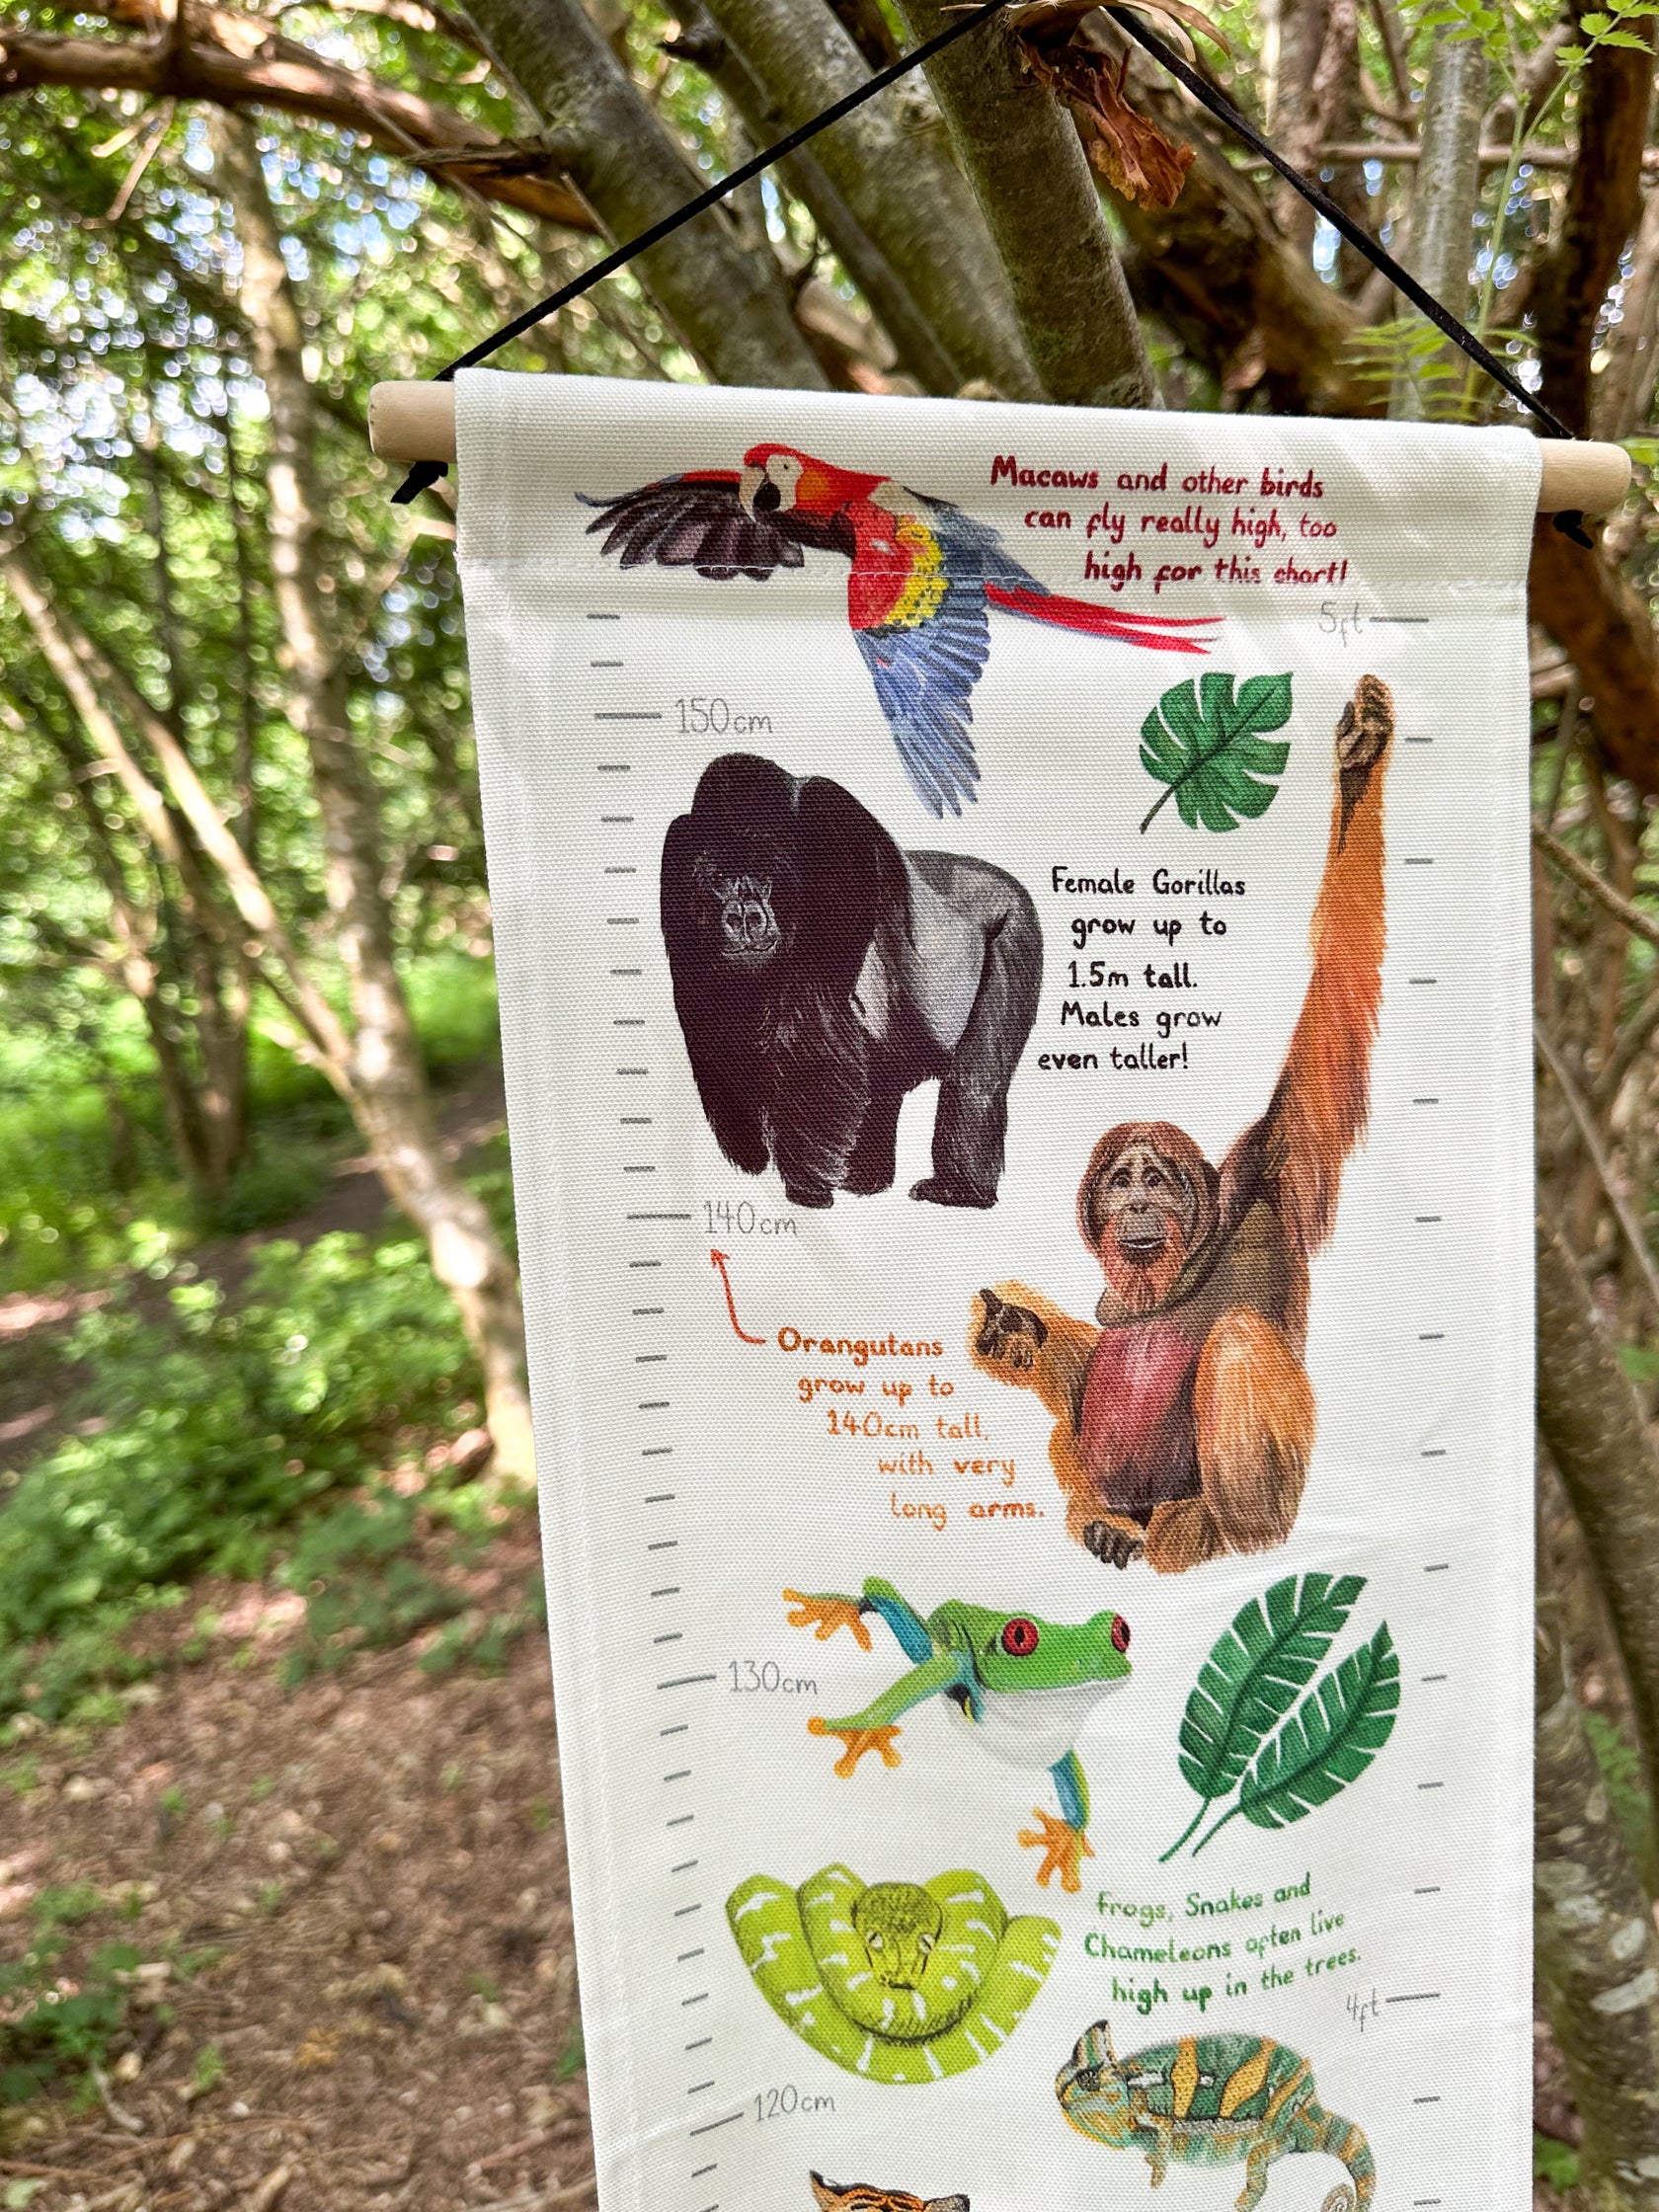 Macaws and other birds
can fly really high, too
high for this chart!
5ft
150cm
Female Gorillas
grow up to
1.5m tall.
Males grow
even taller!
140cm
Orangutans
grow up to
140cm tall.
with very
long arms.
130cm
Frogs, Snakes and
Chameleons often live
high up in the trees.
4ft
120cm